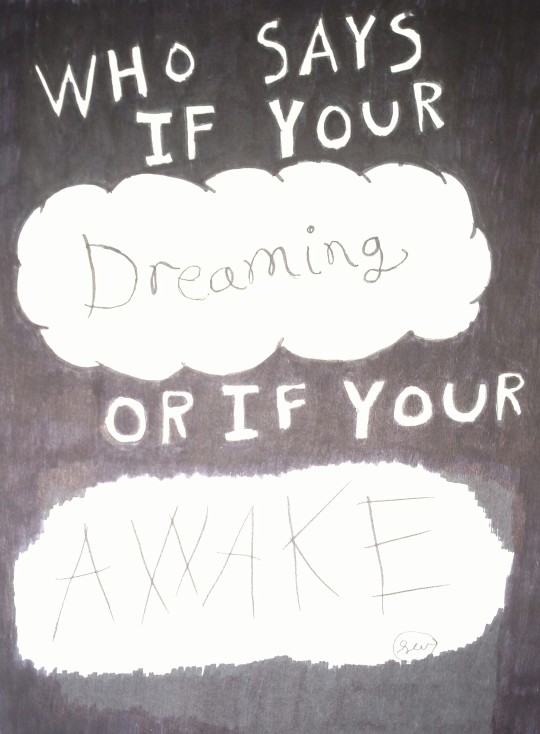 WHO SAYS
IF YOUR
Dreaming
OR IF YOUR
AWAKE